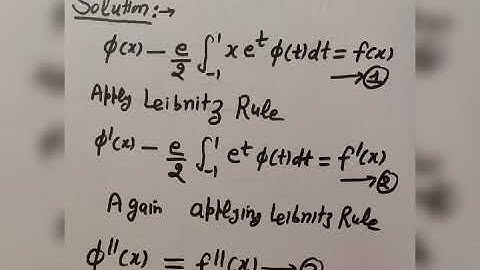 Solution:→
ϕ(x) − e/2 ∫₋₁¹ x eᵗ ϕ(t)dt = f(x) → ①
Apply Leibnitz Rule
ϕ'(x) − e/2 ∫₋₁¹ eᵗ ϕ(t)dt = f'(x) → ②
Again applying Leibnitz Rule
ϕ''(x) = f''(x) →